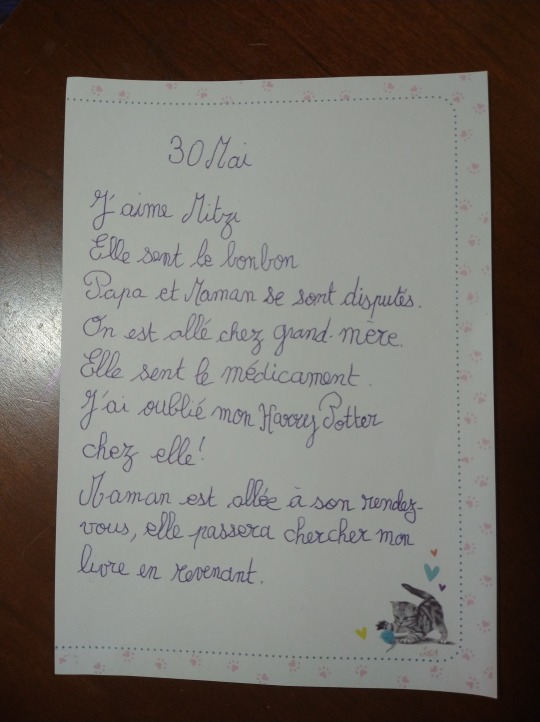 30 Mai
J'aime Mitzi
Elle sent le bonbon
Papa et Maman se sont disputés.
On est allé chez grand-mère.
Elle sent le médicament.
J'ai oublié mon Harry Potter
chez elle!
Maman est allée à son rendez-
vous, elle passera chercher mon
livre en revenant.